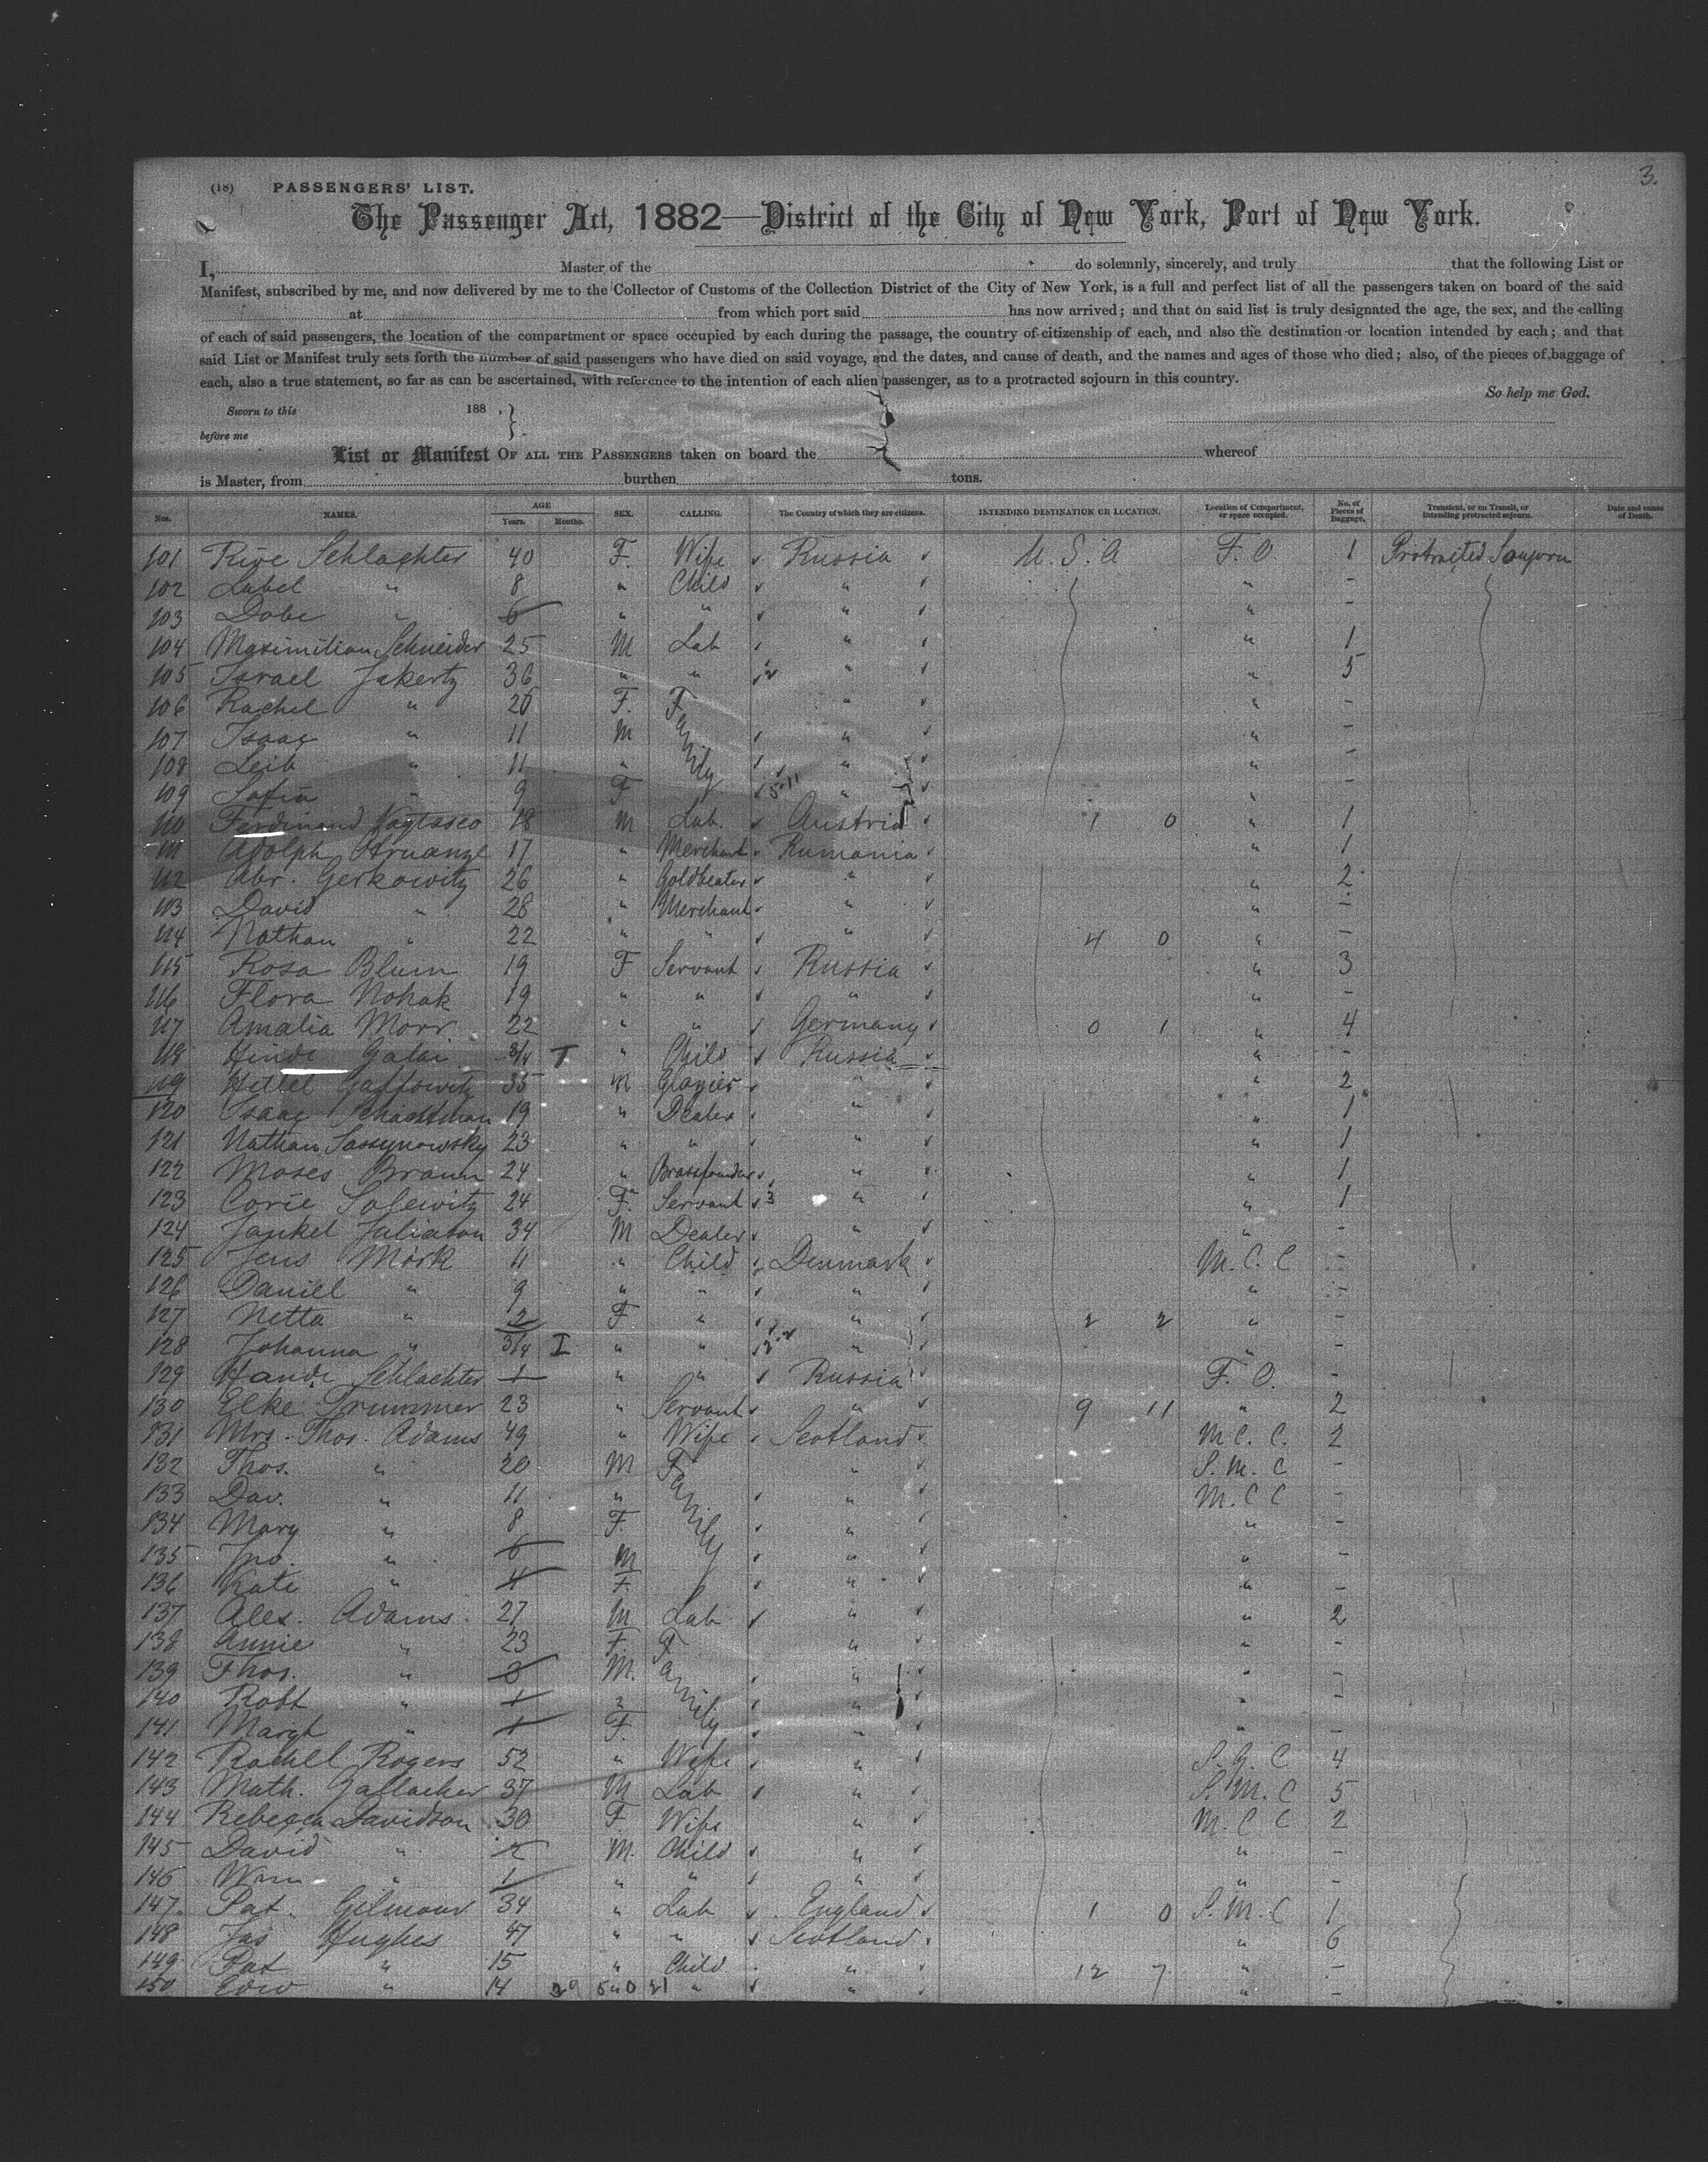 3.
(18) PASSENGERS' LIST.
The Passenger Act, 1882—District of the City of New York, Port of New York.
I, Master of the do solemnly, sincerely, and truly that the following List or
Manifest, subscribed by me, and now delivered by me to the Collector of Customs of the Collection District of the City of New York, is a full and perfect list of all the passengers taken on board of the said
at from which port said has now arrived; and that on said list is truly designated the age, the sex, and the calling
of each of said passengers, the location of the compartment or space occupied by each during the passage, the country of citizenship of each, and also the destination or location intended by each; and that
said List or Manifest truly sets forth the number of said passengers who have died on said voyage, and the dates, and cause of death, and the names and ages of those who died; also, of the pieces of baggage of
each, also a true statement, so far as can be ascertained, with reference to the intention of each alien passenger, as to a protracted sojourn in this country.
So help me God.
Sworn to this 188 . }
before me
List or Manifest OF ALL THE PASSENGERS taken on board the whereof
is Master, from burthen tons.
Nos. NAMES. AGE Years. Months. SEX. CALLING. The Country of which they are citizens. INTENDING DESTINATION OR LOCATION. Location of Compartment, or space occupied. No. of Pieces of Baggage. Transient, or in Transit, or intending protracted sojourn. Date and cause of Death.
101 Rive Schlachter 40 F. Wife Russia U. S. A F. O. 1 Protracted Soujorn
102 Label " 8 " Child " " -
103 Dobe " 6 " " " " -
104 Maximilian Schneider 25 M Lab " " 1
105 Israel Jakertz 36 " " " " 5
106 Rachel " 26 F. Family " " -
107 Isaac " 11 M " " -
108 Leib " 11 " " " -
109 Sofia " 9 F " " -
110 Ferdinand 18 M Lab. Austria 1 0 " 1
111 Adolph 17 " Merchant Rumania " 1
112 Abr. Gerkowitz 26 " Goldbeater " " 2
113 David " 28 " Merchant " " -
114 Nathan " 22 " " " 4 0 " -
115 Rosa Blum 19 F Servant Russia " 3
116 Flora Nohak 19 " " " " -
117 Amalia Morr 22 " " Germany 0 1 " 4
118 Hinde Galai 3/4 I " Child Russia " -
119 Hillel Gaffowitz 35 M Glazier " " 2
120 Isaac Schachtman 19 " Dealer " " 1
121 Nathan Sassynowsky 23 " " " " 1
122 Moses Braun 24 " Brassfounder " " 1
123 Corie Solewitz 24 F. Servant " " 1
124 Jankel Juliaton 34 M Dealer " " -
125 Jens Mörk 11 " Child Denmark M. C. C -
126 Daniel " 9 " " " " -
127 Netta " 2 F " " 2 2 " -
128 Johanna " 3/4 I " " " " -
129 Hande Schlachter 1 " " Russia F. O. -
130 Elke Trummer 23 " Servant " 9 11 " 2
131 Mrs. Thos. Adams 49 " Wife Scotland M C. C. 2
132 Thos. " 20 M Family " S. M. C -
133 Dav. " 11 " " M. C C -
134 Mary " 8 F. " " -
135 Jno. " 6 M " " -
136 Kate " 4 F. " " -
137 Alex. Adams 27 M Lab " " 2
138 Annie " 23 F. Family " " -
139 Thos. " 3 M. " " -
140 Robt " 1 " " " -
141 Margt " 1 F. " " -
142 Rachel Rogers 52 " Wife " S. G. C 4
143 Math. Gallacher 37 M Lab " S. M. C 5
144 Rebecca Davidson 30 F. Wife " M. C C 2
145 David " 2 M. Child " " -
146 Wm " 1 " " " " -
147. Pat. Gilmour 34 " Lab England 1 0 S. M. C 1
148 Jas Hughes 47 " " Scotland " 6
149 Pat " 15 " Child " 12 7 " -
150 Edw " 14 29 21 " " " -